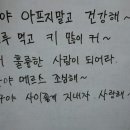 야 아프지말고 건강해~
루 먹고 키 많이 커~
훌륭한 사람이 되어라.
야 메르스 조심해~
야 사이좋게 지내자 사랑해~